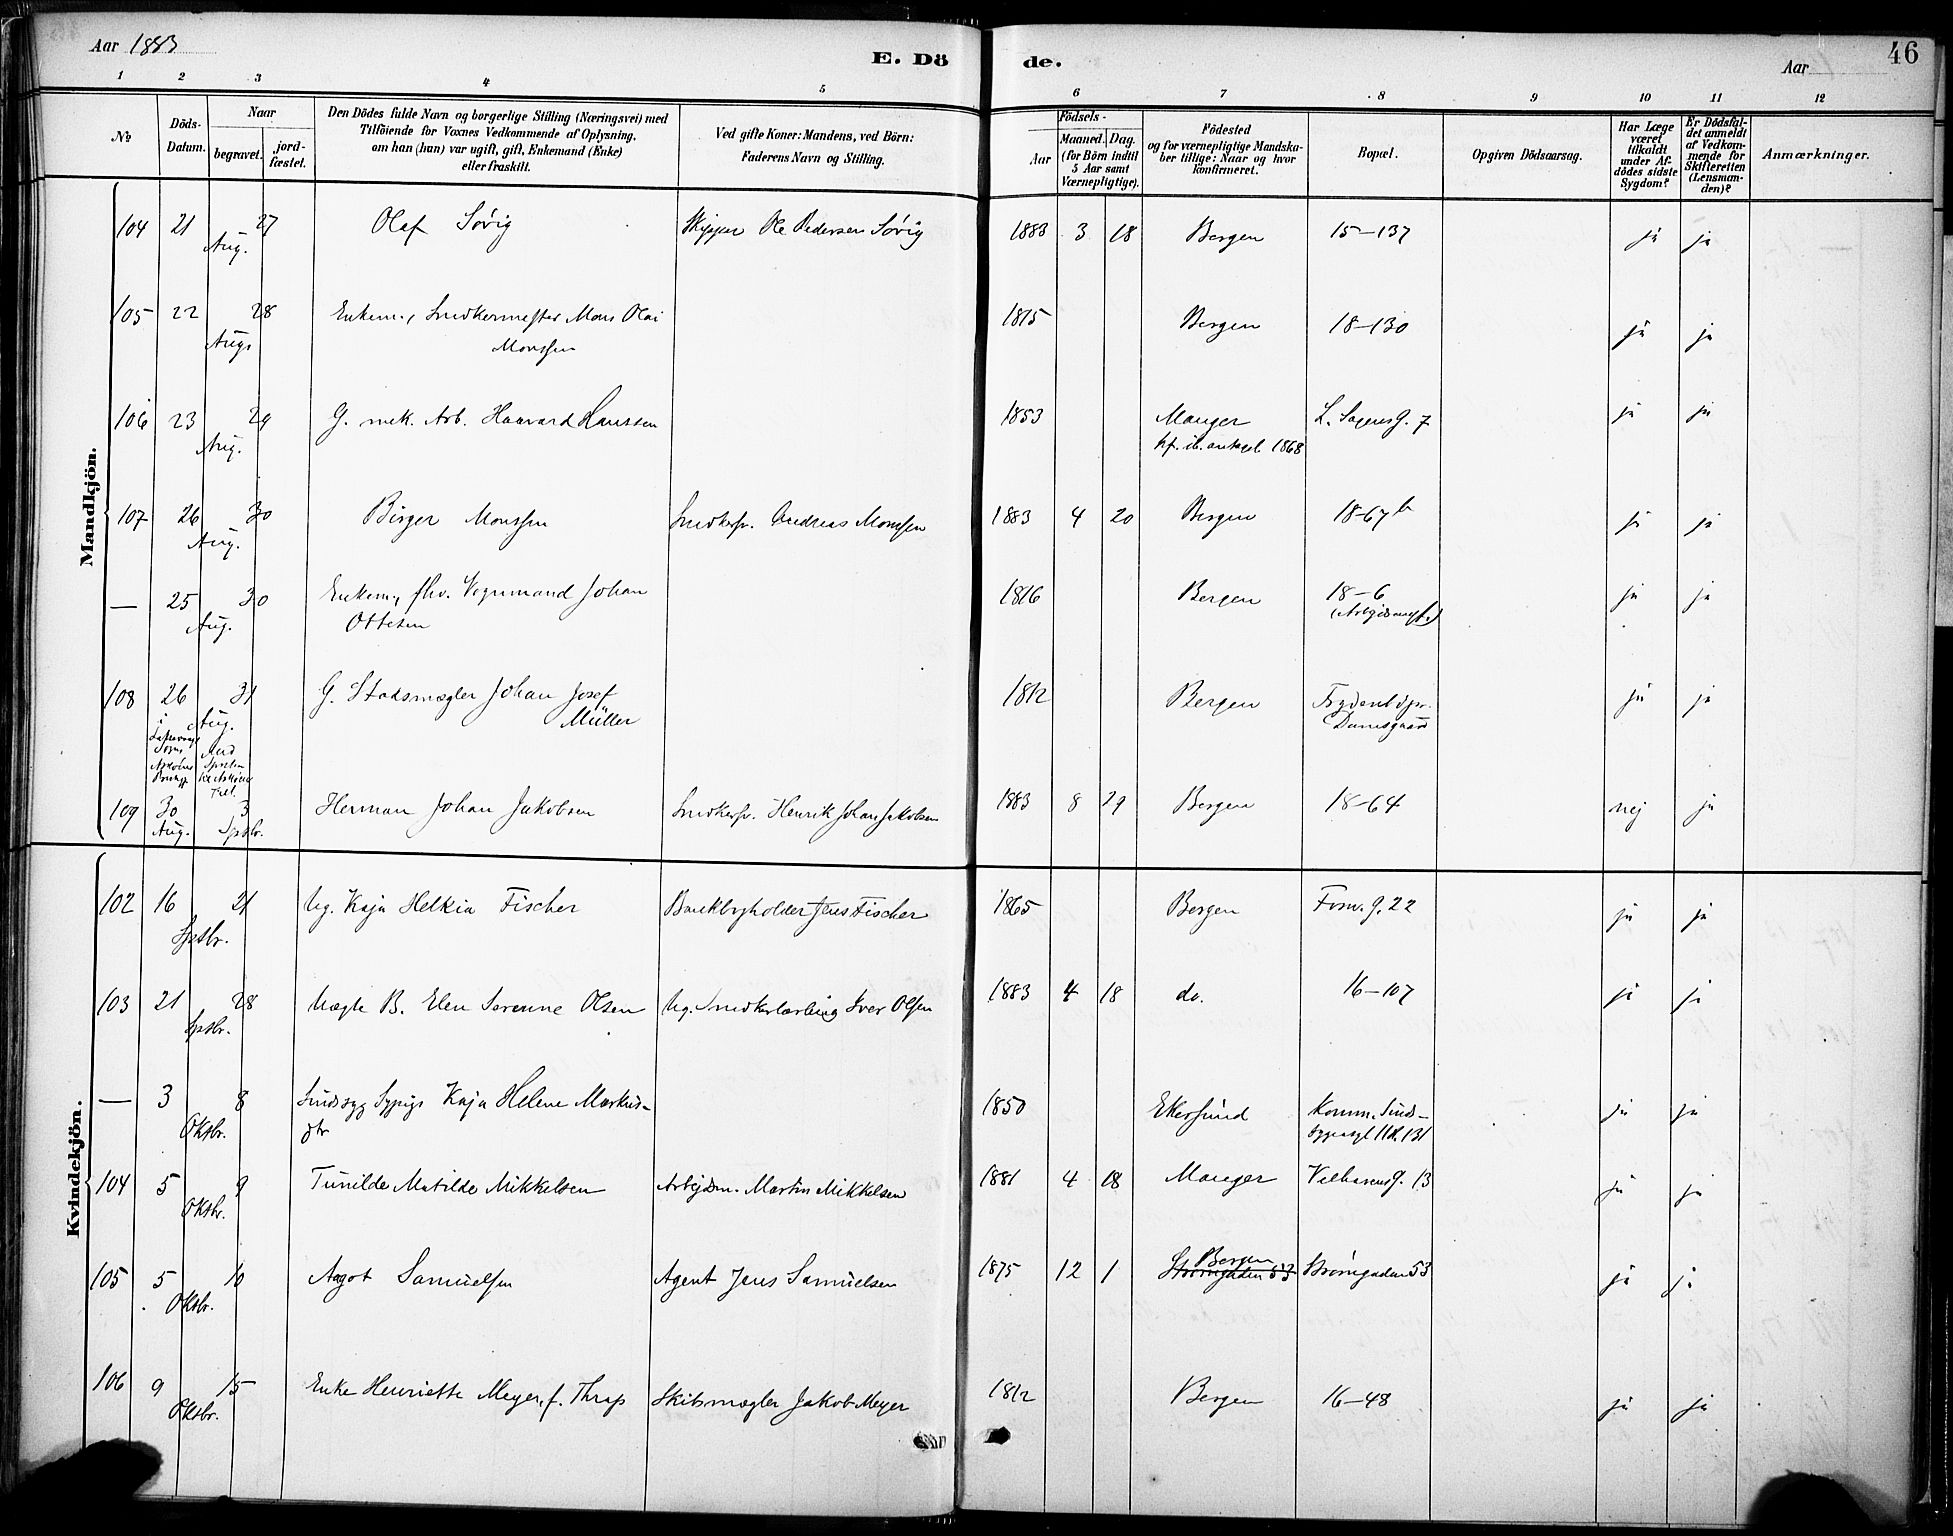 Aar 1883
E. Dö
de.
Aar
46
1 2 3 4 5 6 7 8 9 10 11 12
No
Döds-Datum.
Naar
begravet.
jordfæstet.
Den Dödes fulde Navn og borgerlige Stilling (Næringsvei) med
Tilföiende for Voxnes Vedkommende af Oplysning,
om han (hun) var ugift, gift, Enkemand (Enke)
eller fraskilt.
Ved gifte Koner: Mandens, ved Börn:
Faderens Navn og Stilling.
Födsels-
Aar
Maaned. Dag.
(for Börn indtil
5 Aar samt
Værnepligtige).
Födested
og for værnepligtige Mandska-
ber tillige: Naar og hvor
konfirmeret.
Bopæl.
Opgiven Dödsaarsag.
Har Læge
været
tilkaldt
under Af-
dödes sidste
Sygdom?
Er Dödsfal-
det anmeldt
af Vedkom-
mende for
Skifteretten
(Lensman-
den)?
Anmærkninger.
Mandkjön.
104 21 27 Olaf Sørig Skipper Ole Pedersen Sørig 1883 3 18 Bergen 15-137 ja ja
Aug.
105 22 28 Enkem., Snedkermester Mons Olai 1815 Bergen 18-130 ja ja
Augs Monssen
106 23 29 G. mek. Arb. Haavard Hanssen 1853 Manger L. Sagens G. 7 ja ja
Aug. kf. ib. 1868
107 26 30 Birger Monssen Snedkersv. Andreas Monssen 1883 4 20 Bergen 18-67 b ja ja
Aug.
— 25 30 Enkem., fhv. Vognmand Johan 1816 Bergen 18-6 ja ja
Aug. Ottesen
108 26 31 G. Stadsmægler Johan Josef 1812 Bergen ja ja
i Aug. Müller Damsgaard
109 30 3 Herman Johan Jakobsen Snedkersv. Henrik Johan Jakobsen 1883 8 29 Bergen 18-64 nej ja
Aug. Sptbr.
Kvindekjön.
102 16 21 Ug. Kaja Helkia Fischer Jens Fischer 1865 Bergen Forn. G. 22 ja ja
Sptbr.
103 21 28 Uægte B. Elen Serenne Olsen Ug. Snedkerlærling Iver Olsen 1883 4 18 do. 16-107 ja ja
Sptbr.
— 3 8 Sindssyg Sypige Kaja Helene Markus- 1850 Ekersund Komm. Sinds- ja ja
Oktbr. dtr 131
104 5 9 Tunilde Matilde Mikkelsen Arbejdsm. Martin Mikkelsen 1881 4 18 Manger Velhavens G. 13 ja ja
Oktbr.
105 5 10 Aagot Samuelsen Agent Jens Samuelsen 1875 12 1 Bergen Strømgaden 53 Strømgaden 53 ja ja
Oktbr.
106 9 15 Enke Henriette Meyer, f. Thrap Skibsmægler Jakob Meyer 1812 Bergen 16-48 ja ja
Oktbr.